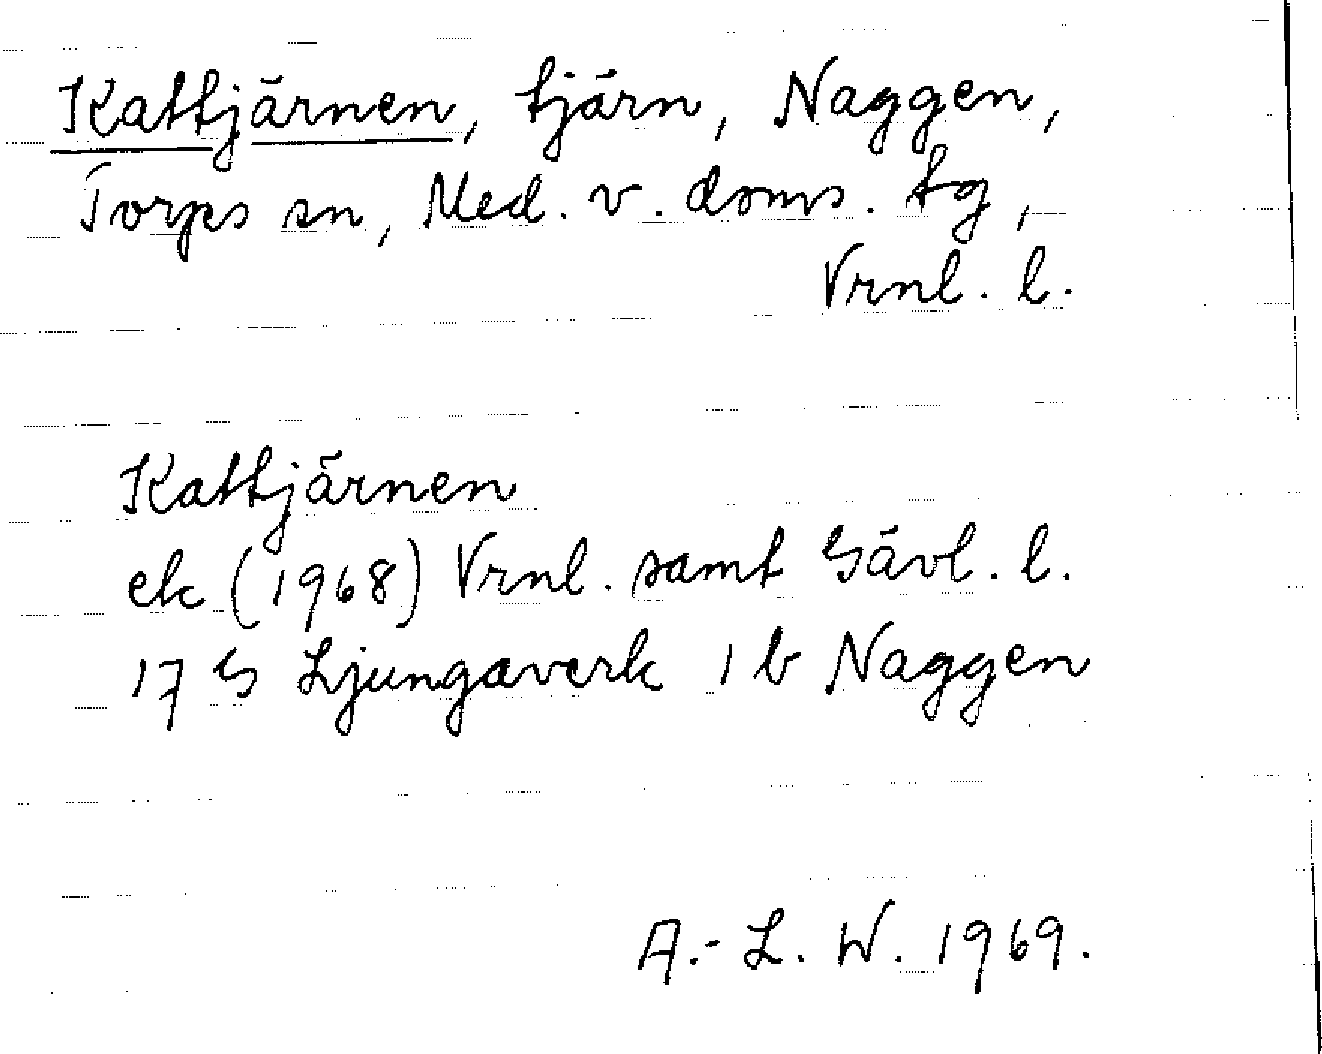 Kattjärnen, tjärn, Naggen,
Torps sn, Med. v. doms. tg,
Vrnl. l.
Kattjärnen
ek (1968) Vrnl. samt Gävl. l.
17 G Ljungaverk 1 b Naggen
A.-L. W. 1969.